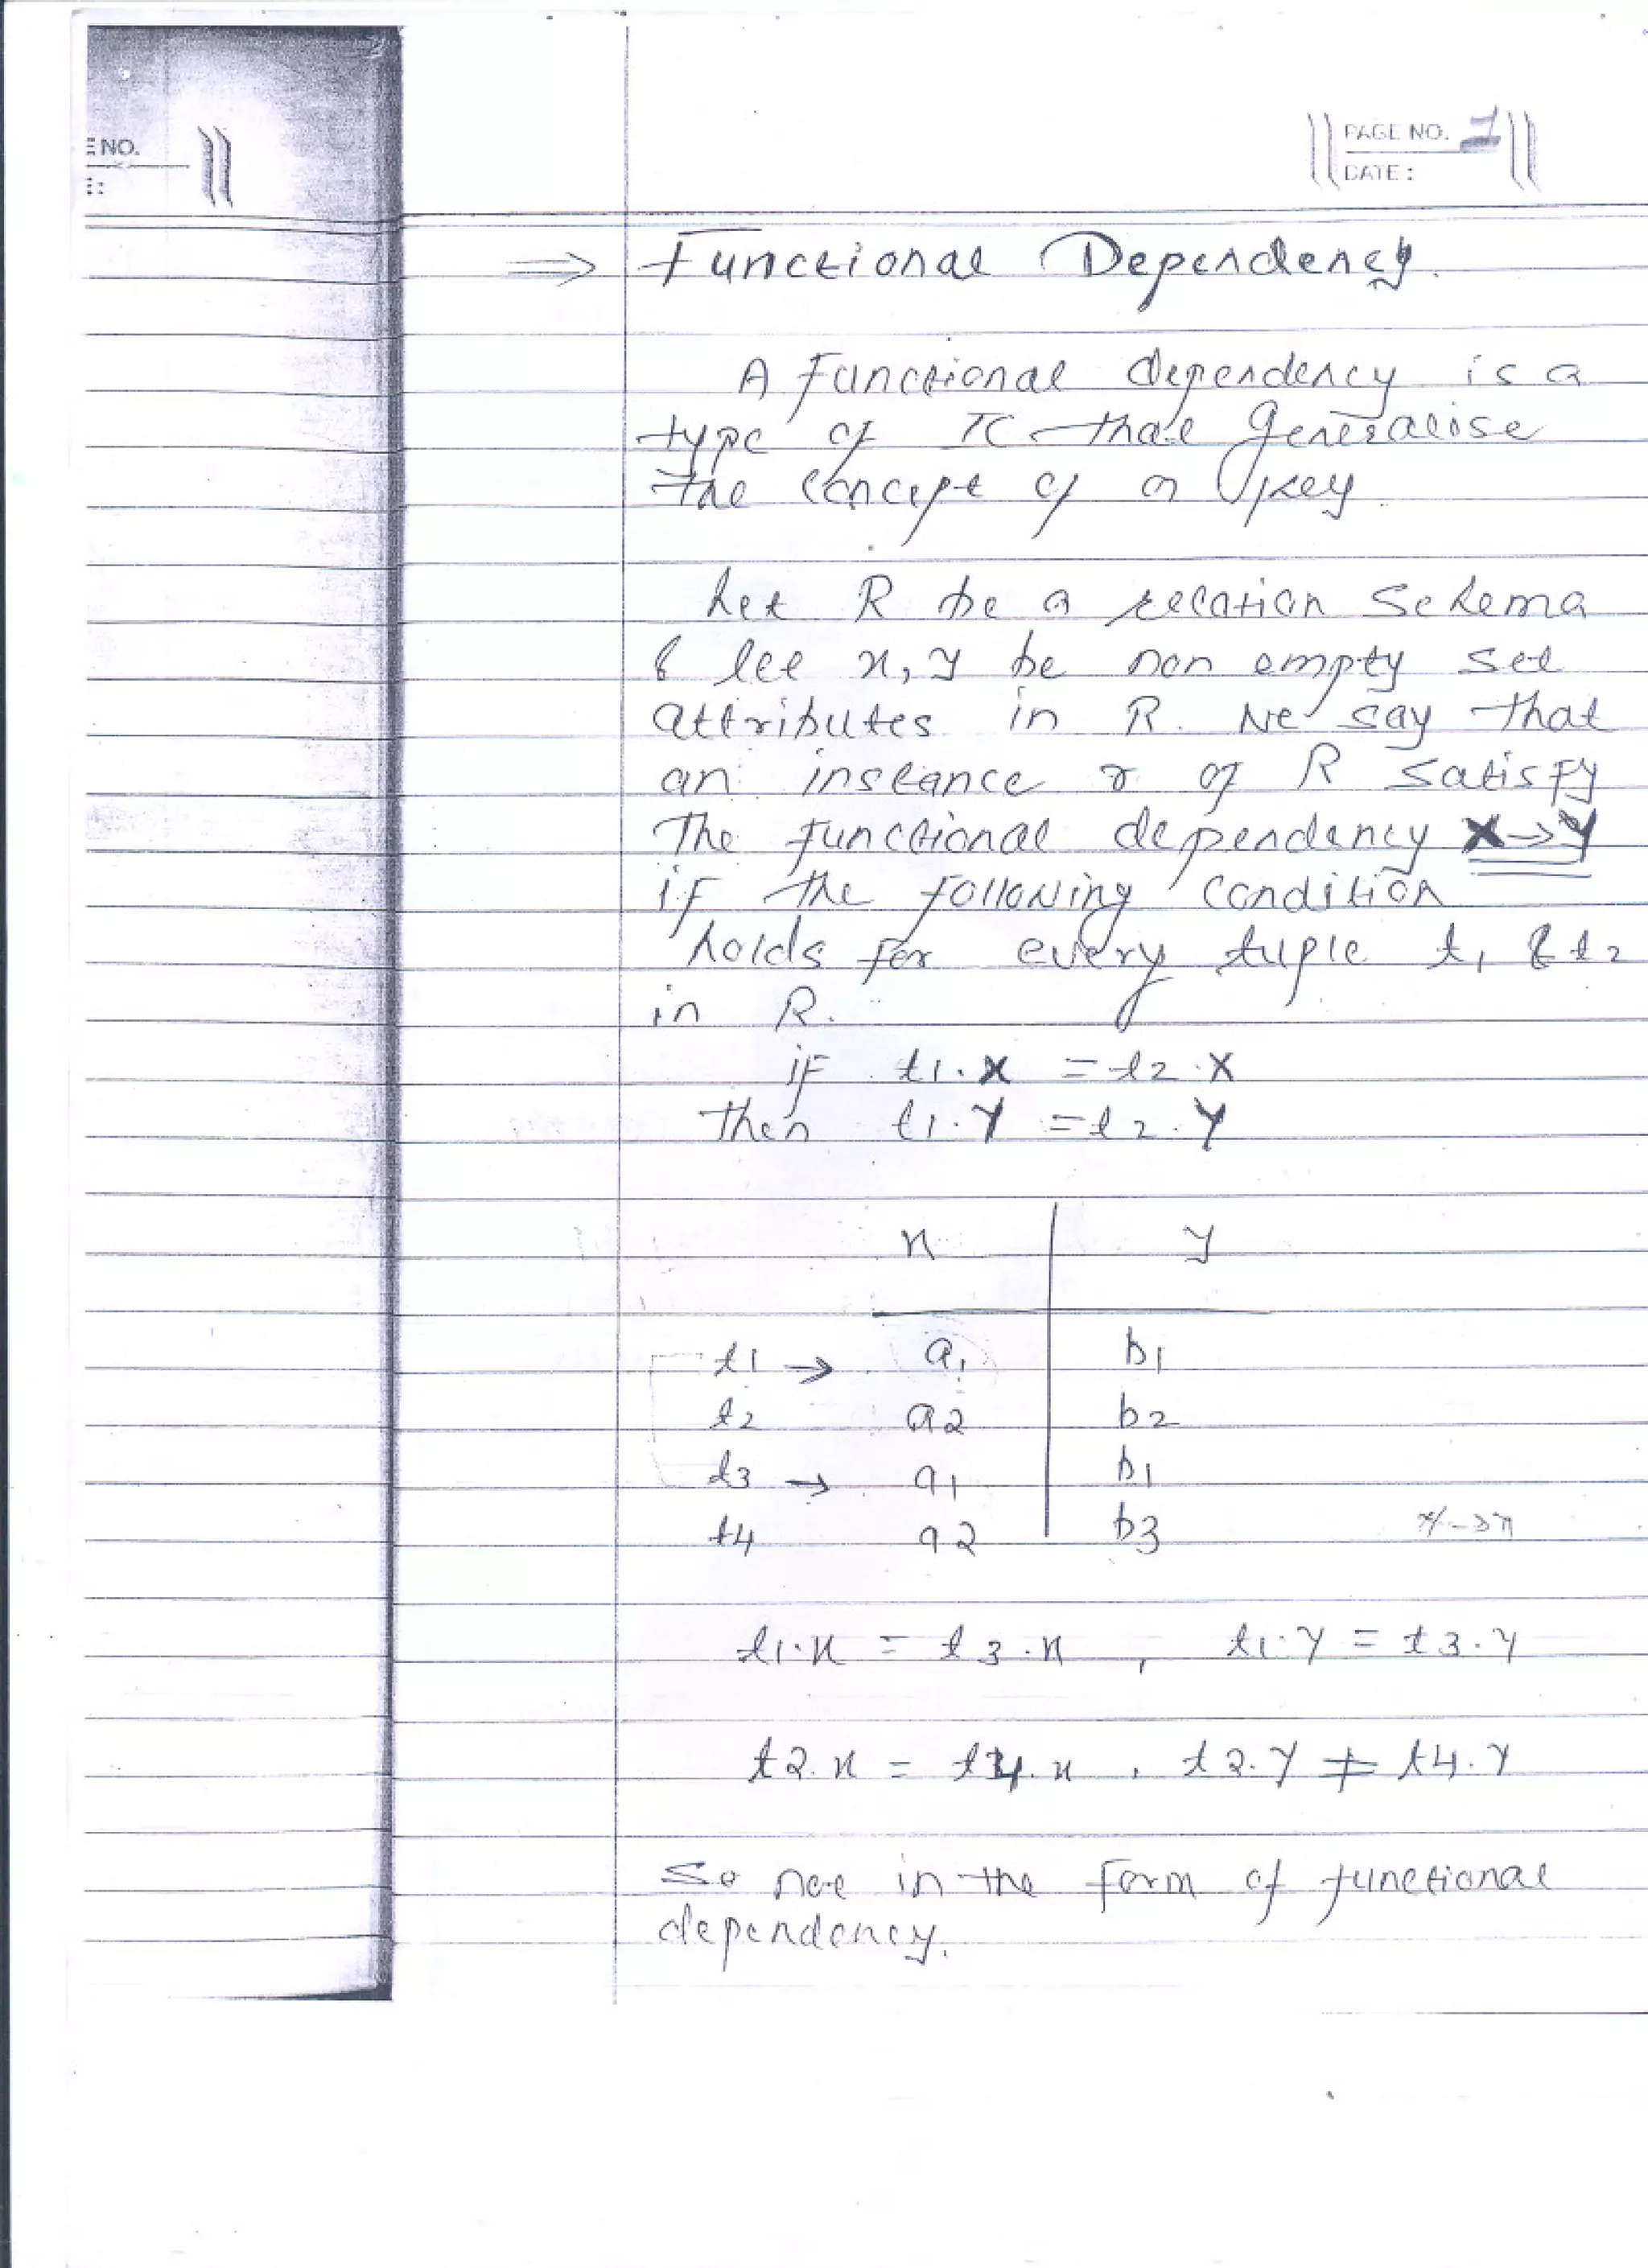 E NO.
E :
PAGE NO. 1
DATE :
⇒ Functional Dependency.
A functional dependency is a
type of IC that generalise
the concept of a key.
Let R be a relation Schema
& let x, y be non empty set
attributes in R. We say that
an instance r of R satisfy
The functional dependency X→Y
if the following condition
holds for every tuple t1 & t2
in R.
if t1.X = t2.X
then t1.Y = t2.Y
x y
t1 → a1 b1
t2 a2 b2
t3 → a1 b1
t4 a2 b3
t1.x = t3.x , t1.y = t3.y
t2.x = t4.x , t2.y ≠ t4.y
So not in the form of functional
dependency.